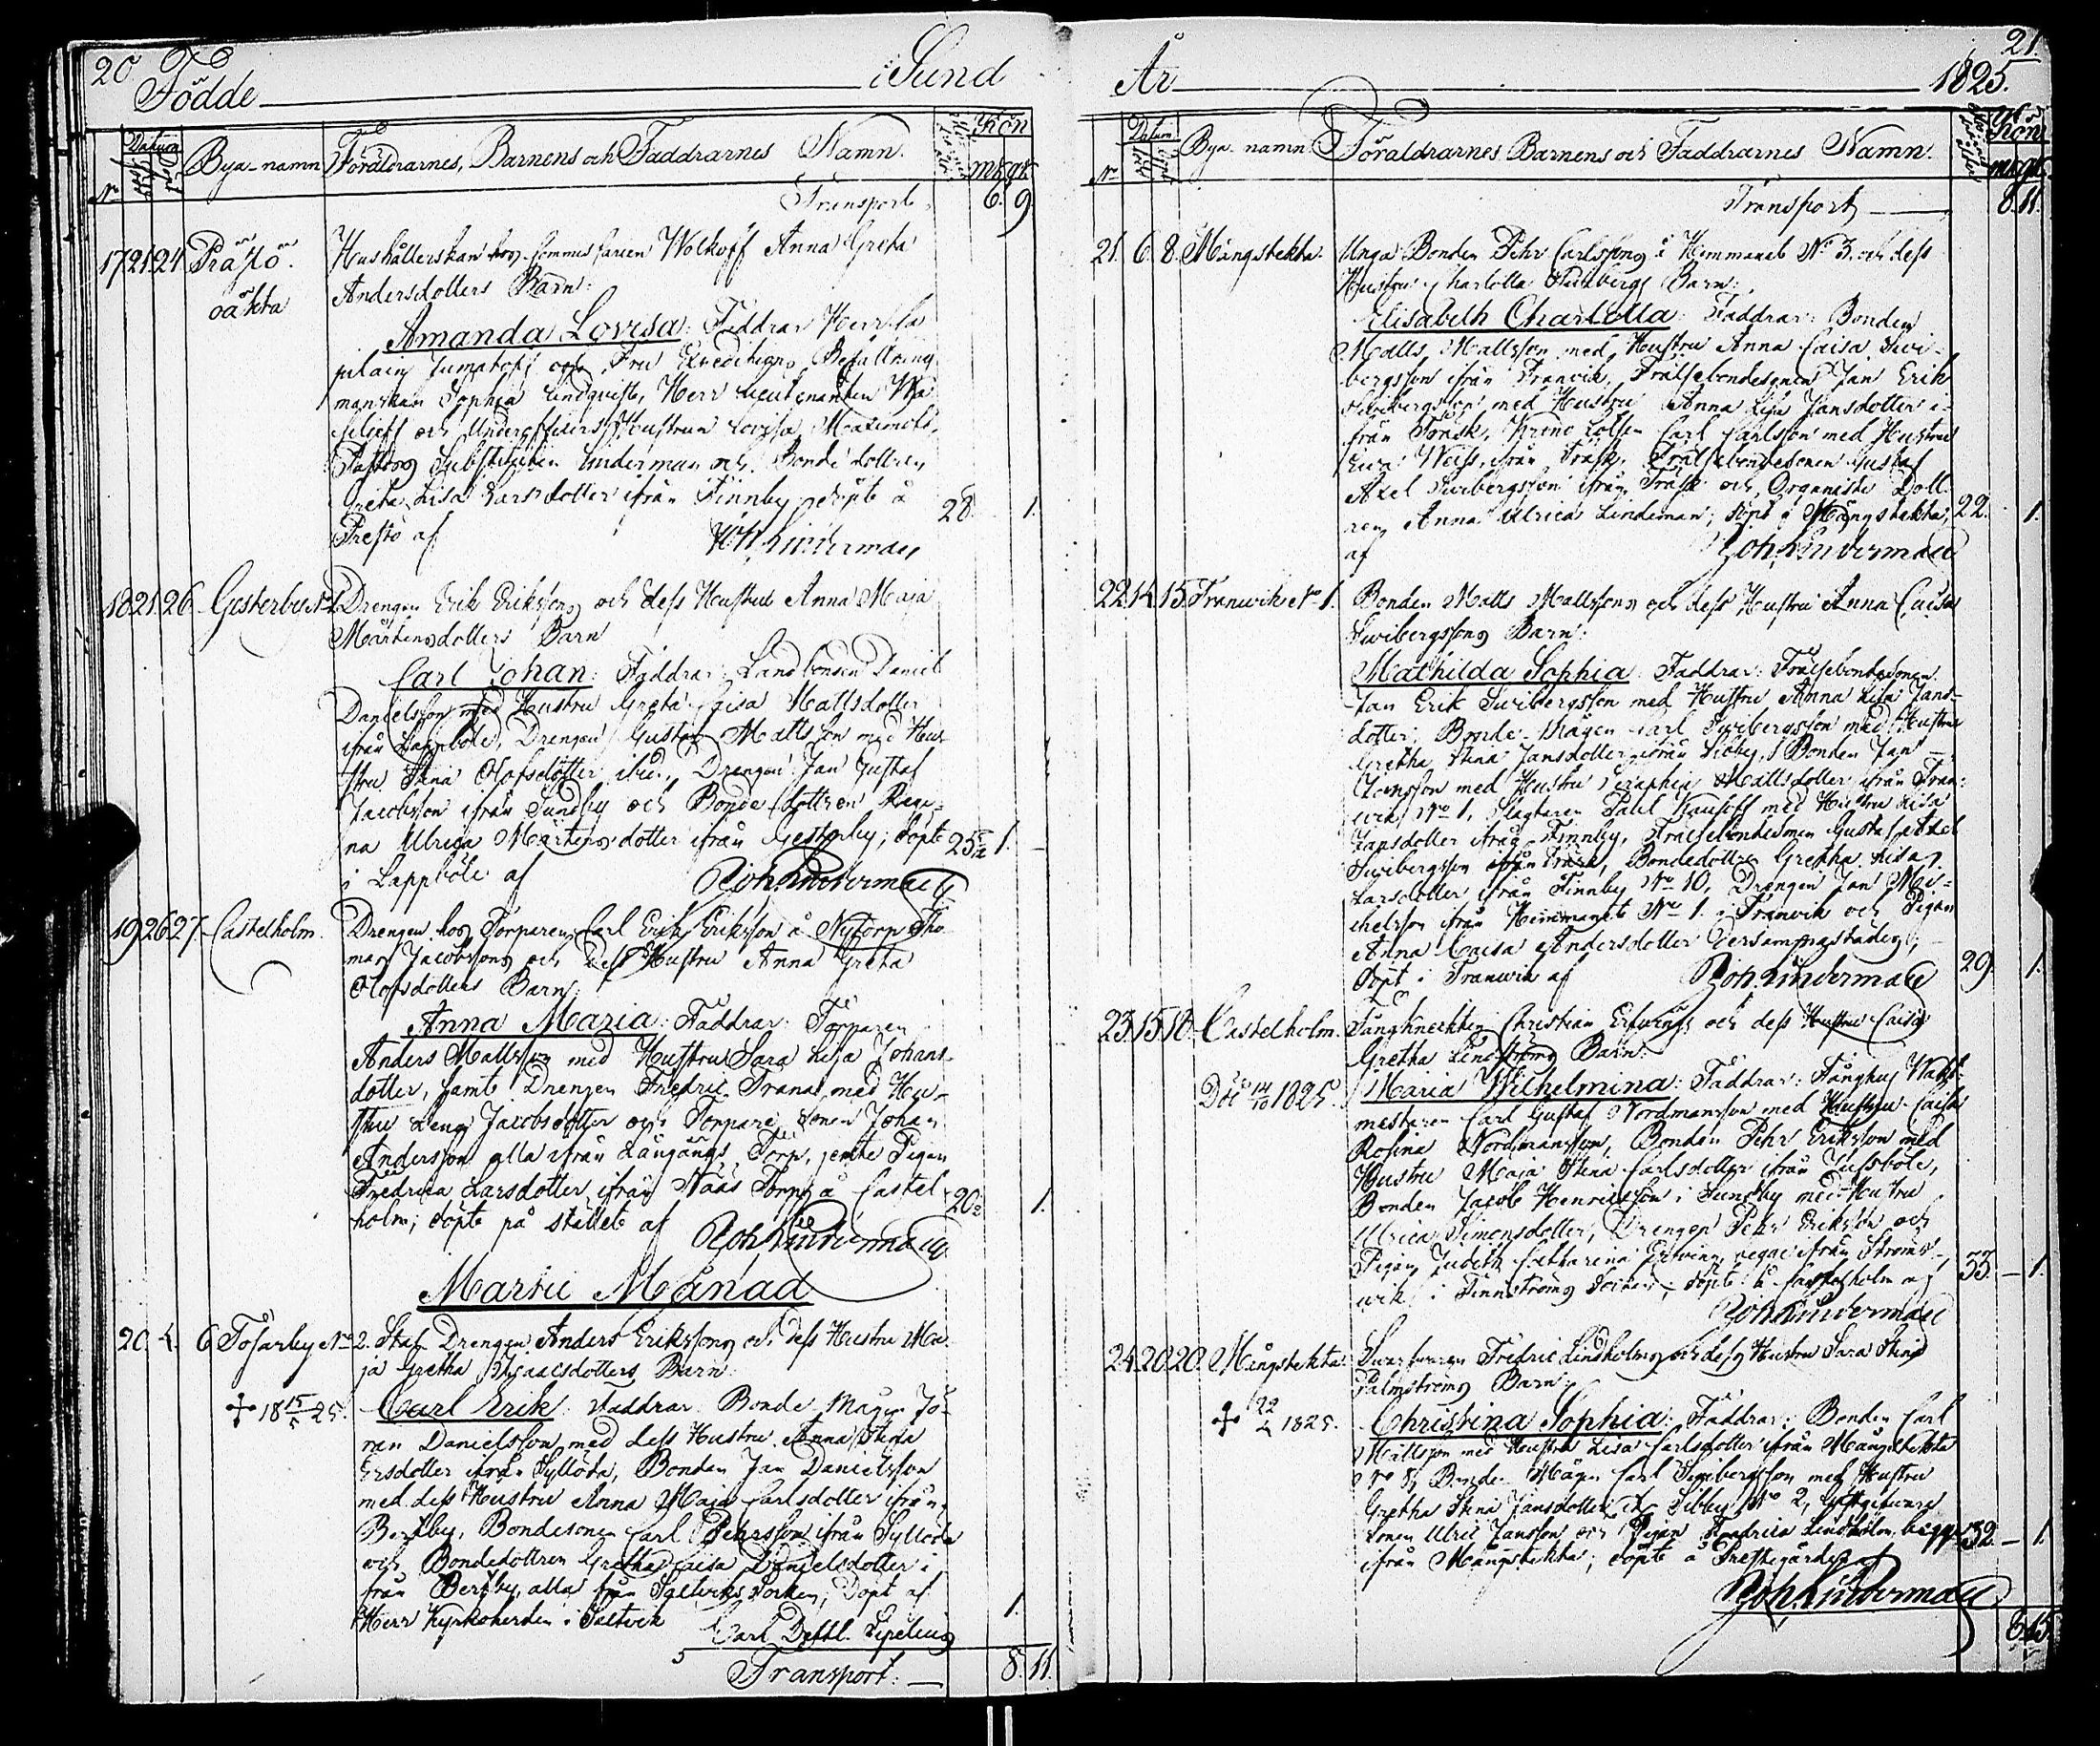 20
Födde i Sund
Datum
No Född Döpt Bya-namn Föräldrarnes, Barnens och Faddrarnes Namn. Kön
mk. qk.
Transport 6. 9.
17 21 24 Prästö. Hushållerskan hos Commissarien Wolkoff Anna Greta
oäkta Andersdotters Barn:
Amanda Lovisa: Faddrar Herr Ca
pitain Jumatoff och Fru Expeditions Befallning
manskan Sophia Lindqvist, Herr Lieutenanten
och Underofficers Hustrun Lovisa
Pastors Substituten Linderman och Bonde dottren
Greta Lisa Larsdotter ifrån Finnby, döpte å 28. 1.
Prestö af Joh. Linderman
18 21. 26. Gesterby No 1. Drengen Erik Erikssons och dess Hustrus Anna Maja
Mårtensdotters Barn
Carl Johan: Faddrar: Landbonden Daniel
Danielsson med Hustru Greta Caisa Mattsdotter
ifrån Lappböle, Drengen Gustaf Mattsson med Hu-
stru Stina Olofsdotter ibid., Drengen Jan Gustaf
Jacobsson ifrån Sundby och Bonde-dottren Regi-
na Ulrica Mårtensdotter ifrån Gesterby; döpte 25 1. –
i Lappböle af Joh. Linderman
19 26 27. Castelholm. Drengen hos Torparen Carl Erik Eriksson å Nytorp Tho
mas Jacobssons och Dess Hustrus Anna Greta
Olofsdotters Barn:
Anna Maria: Faddrar: Torparen
Anders Mattsson med Hustru Sara Lisa Johans-
dotter, samt Drengen Fredric Trana med Hu-
stru Lena Jacobsdotter och Torpare sonen Johan
Andersson alla ifrån Långängs Torp, jemte Pigan
Fredrica Larsdotter ifrån Nääs Torp å Castel-
holm; döpte på stället af Joh. Linderman 20 1.
Martii Månad
20. 4. 6 Tosarby No 2. Statdrengen Anders Erikssons och dess Hustrus Ma-
ja Gretha Isaacsdotters Barn:
+ 18 15/5 25. Carl Erik: Faddrar: Bonde Mågen Jö-
ran Danielsson med dess Hustru Anna Stina
Ersdotter ifrån Syllöda, Bonden Jan Danielsson
med dess Hustru Anna Maja Carlsdotter ifrån
Bertby, Bondesonen Carl Pehrsson ifrån Syllöda
och Bondedottren Gretha Caisa Danielsdotter i-
från Bertby, alla från Saltviks Socken; Döpt af
Herr Kyrkoherden i Saltvik Carl Sipelius 1.
Transport: 8. 11.
21.
År 1825.
Datum
No Född Döpt Bya-namn Föräldrarnes Barnens och Faddrarnes Namn. Kön
mk. qk.
Transport 8. 11.
21. 6. 8. Mångstekta. Unga Bonden Pehr Carlssons å Hemmanet No 3. och dess
Hustrus Charlotta Barn:
Elisabeth Charlotta: Faddrar: Bonden
Matts Mattsson med Hustru Anna Caisa Swi-
bergsson ifrån Tranvik, Frälsebondesonen Jan Erik
Swibergsson med Hustru Anna Lisa Jansdotter i-
från Träsk, Carl Carlsson med Hustru
Ewa Weiss ifrån Träsk, Frälsebondesonen Gustaf
Axel Swibergsson ifrån Träsk och Organiste Dott-
ren Anna Ulrica Lindeman; döpt i Mångstekta 22. 1.
af Joh. Linderman
22 14. 15. Tranwik No 1. Bonden Matts Mattssons och dess Hustrus Anna Caisa
Swibergssons Barn:
Mathilda Sophia: Faddrar: Frälsebondesonen
Jan Erik Swibergsson med Hustru Anna Lisa Jans-
dotter, Bonde-Mågen Carl Swibergsson med Hustru
Gretha Stina Jansdotter ifrån Sibby, Bonden Jan
Jansson med Hustru Seraphia Mattsdotter ifrån Tran-
wik No 1, Slagtaren Paul med Hustru Lisa
Jansdotter ifrån Finnby, Frälsebondesonen Gustaf Axel
Swibergsson ifrån Träsk, Bondedottren Gretha Lisa
Larsdotter ifrån Finnby No 10, Drengen Jan Mi-
chelsson ifrån Hemmanet No 1. i Tranvik och Pigan
Anna Caisa Andersdotter dersammastädes;
döpt i Tranwik af Joh. Linderman 29. 1.
23. 15 18. Castelholm. Fångknechten Christian Erfvings och dess Hustrus Caisa
Gretha Lindströms Barn:
Död 14/10 1825. Maria Wilhelmina: Faddrar: Fånghus Wakt-
mästaren Carl Gustaf Nordmansson med Hustru Caisa
Rosina Nordmansson, Bonden Pehr Eriksson med
Hustru Maja Stina Carlsdotter ifrån Jussböle,
Bonden Jacob Henricsson i Sundby med Hustru
Ulrica Simonsdotter, Drengen Pehr Eriksson och
Pigan Judith Catharina begge ifrån Ströms-
wik i Finnströms Socken; döpte å Castelholm af 33. – 1.
Joh. Linderman
24. 20. 20. Mångstekta: Swarfwaren Fredric Lindholms och dess Hustrus Sara Stina
Palmströms Barn:
+ 22/4 1825. Christina Sophia: Faddrar: Bonden Carl
Mattsson med Hustru Lisa Carlsdotter ifrån Mångstekta
No 8, Bonde Mågen Carl Swibergsson med Hustru
Gretha Stina Jansdotter ifr. Sibby No 2, Gästgifware
Sonen Ulric Jansson och Pigan Fredrica Lindholm, begge 32. – 1.
ifrån Mångstekta; döpte å Prestegården af
Joh. Linderman
8. 15.